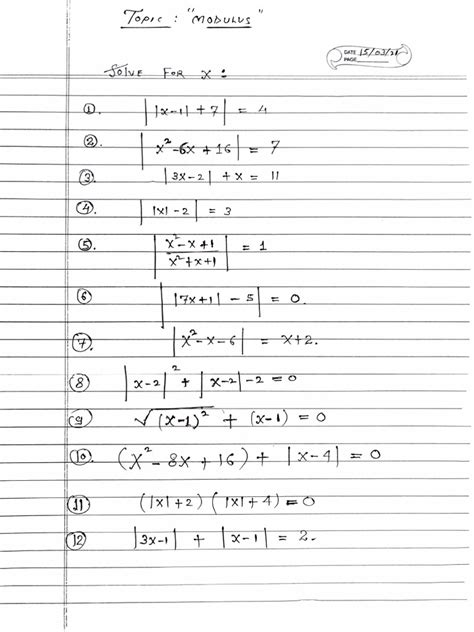 TOPIC : "MODULUS"
DATE 15/03/21
PAGE
SOLVE FOR X :
①. ||x-1| + 7| = 4
②. |x²-6x+16| = 7
③. |3x-2| + x = 11
④. ||x| - 2| = 3
⑤. |(x²-x+1)/(x²+x+1)| = 1
⑥ ||7x+1| - 5| = 0.
⑦. |x²-x-6| = x+2.
⑧ |x-2|² + |x-2| - 2 = 0
⑨ √(x-1)² + (x-1) = 0
⑩. (x²-8x+16) + |x-4| = 0
⑪ (|x|+2) (|x|+4) = 0
⑫ |3x-1| + |x-1| = 2.